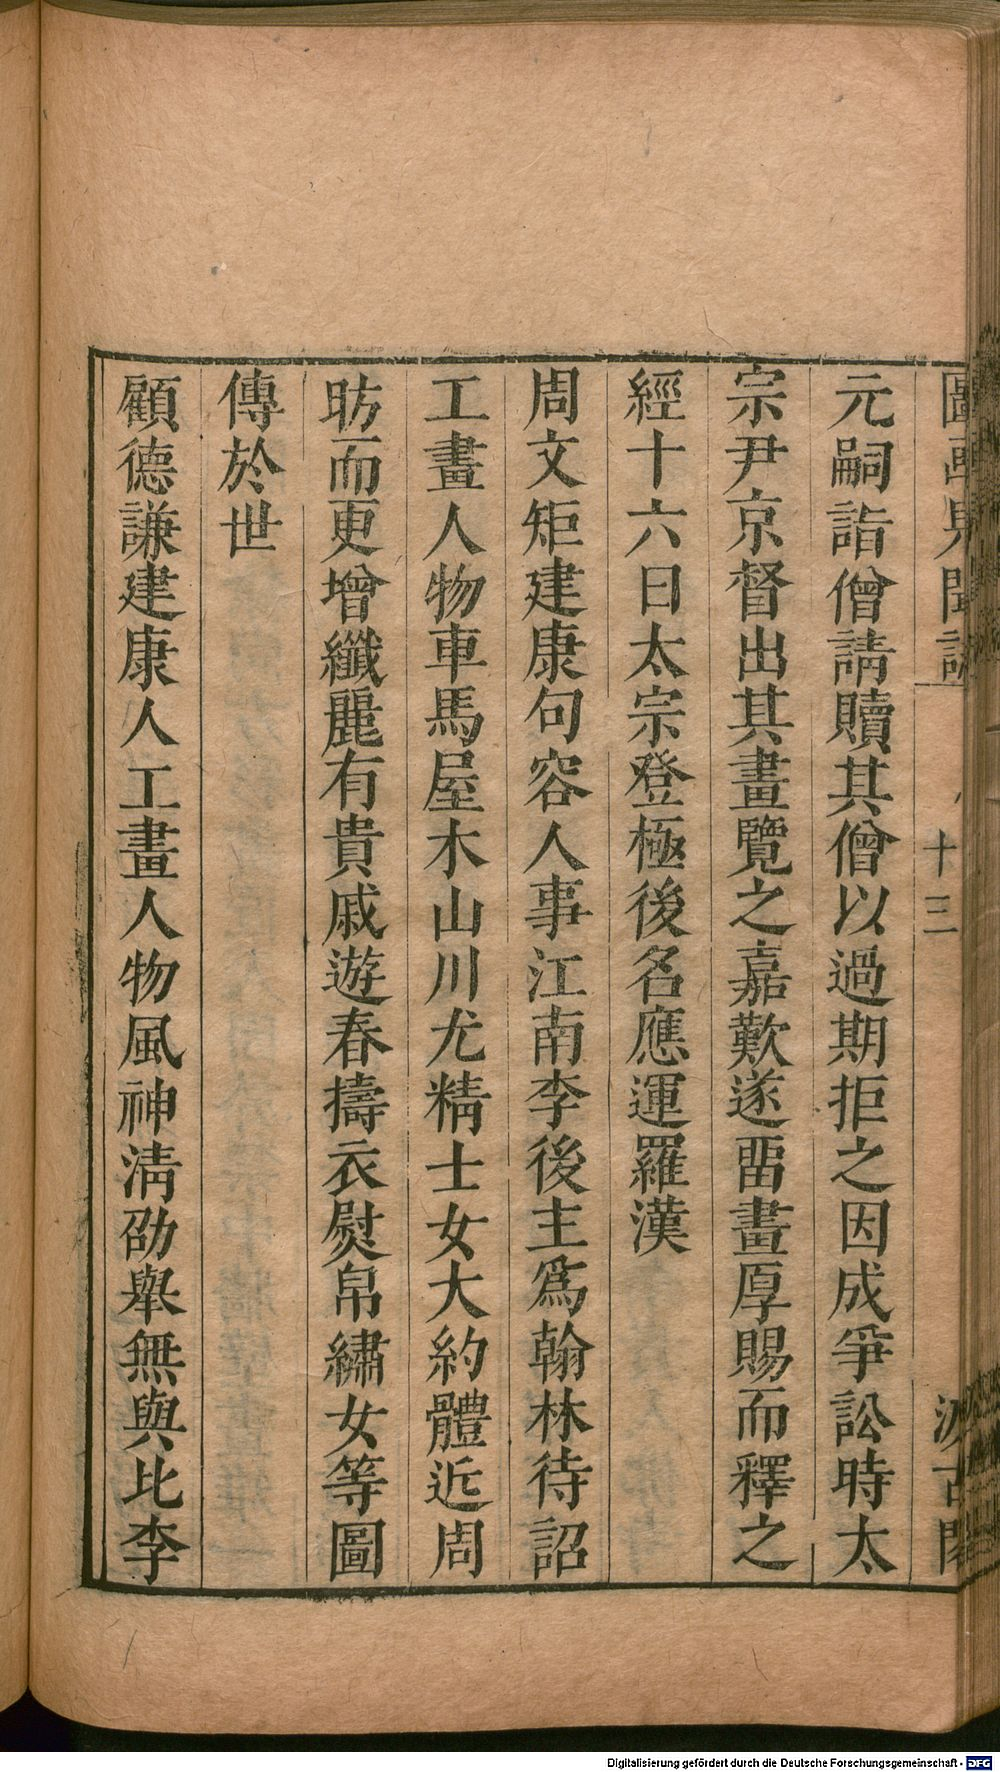 圖畫見聞誌 十三 汲古閣
元嗣詣僧請贖其僧以過期拒之因成爭訟時太
宗尹京督出其畫覽之嘉歎遂畱畫厚賜而釋之
經十六日太宗登極後名應運羅漢
周文矩建康句容人事江南李後主爲翰林待詔
工畫人物車馬屋木山川尤精士女大約體近周
昉而更增纖麗有貴戚遊春擣衣熨帛繡女等圖
傳於世
顧德謙建康人工畫人物風神淸劭舉無與比李
Digitalisierung gefördert durch die Deutsche Forschungsgemeinschaft - DFG